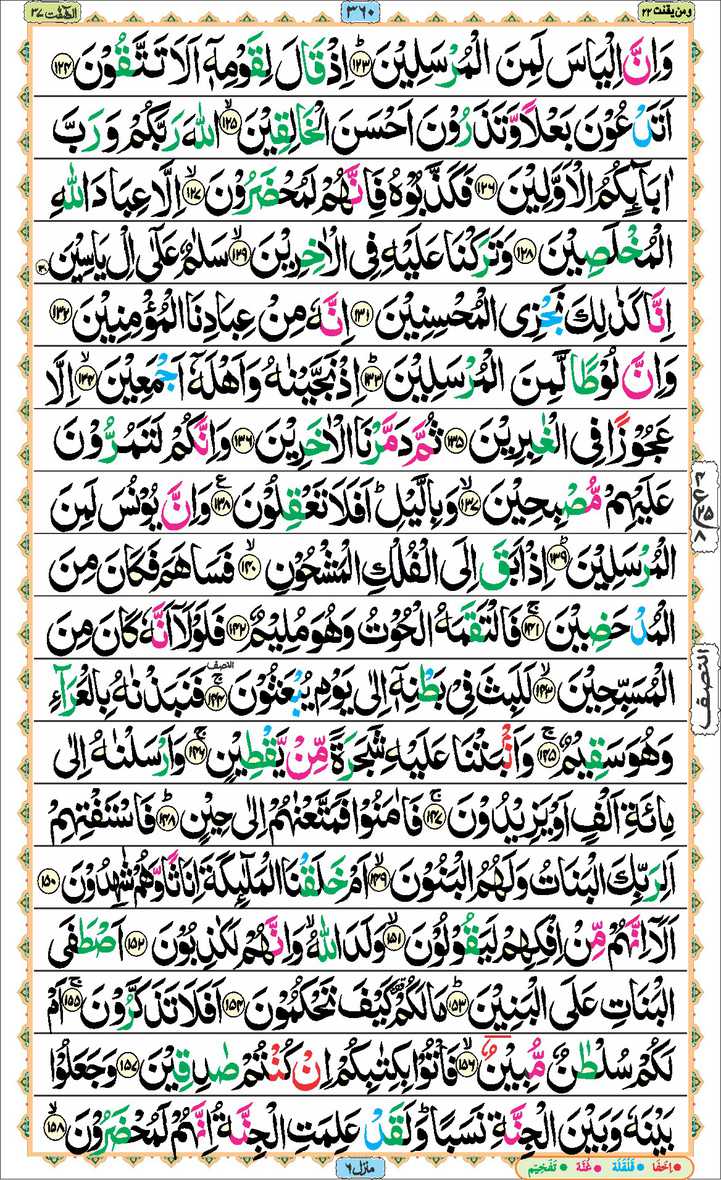 ومن یقنت ۲۳
۳۶۰
الصّٰفّٰت ۳۷
وَاِنَّ اِلْيَاسَ لَمِنَ الْمُرْسَلِيْنَ ؕ‏﴿۱۲۳﴾ اِذْ قَالَ لِقَوْمِهٖۤ اَلَا تَتَّقُوْنَ ﴿۱۲۴﴾
اَتَدْعُوْنَ بَعْلًا وَّتَذَرُوْنَ اَحْسَنَ الْخَالِقِيْنَ ۙ‏﴿۱۲۵﴾ اللّٰهَ رَبَّكُمْ وَرَبَّ
اٰبَآئِكُمُ الْاَوَّلِيْنَ ﴿۱۲۶﴾ فَكَذَّبُوْهُ فَاِنَّهُمْ لَمُحْضَرُوْنَ ۙ‏﴿۱۲۷﴾ اِلَّا عِبَادَ اللّٰهِ
الْمُخْلَصِيْنَ ﴿۱۲۸﴾ وَتَرَكْنَا عَلَيْهِ فِى الْاٰخِرِيْنَ ۙ‏﴿۱۲۹﴾ سَلٰمٌ عَلٰٓى اِلْ يَاسِيْنَ ﴿۱۳۰﴾
اِنَّا كَذٰلِكَ نَجْزِى الْمُحْسِنِيْنَ ﴿۱۳۱﴾ اِنَّهٗ مِنْ عِبَادِنَا الْمُؤْمِنِيْنَ ﴿۱۳۲﴾
وَاِنَّ لُوْطًا لَّمِنَ الْمُرْسَلِيْنَ ؕ‏﴿۱۳۳﴾ اِذْ نَجَّيْنٰهُ وَاَهْلَهٗۤ اَجْمَعِيْنَ ۙ‏﴿۱۳۴﴾ اِلَّا
عَجُوْزًا فِى الْغٰبِرِيْنَ ﴿۱۳۵﴾ ثُمَّ دَمَّرْنَا الْاٰخَرِيْنَ ﴿۱۳۶﴾ وَاِنَّكُمْ لَتَمُرُّوْنَ
عَلَيْهِمْ مُّصْبِحِيْنَ ۙ‏﴿۱۳۷﴾ وَبِالَّيْلِ ؕ اَفَلَا تَعْقِلُوْنَ ﴿۱۳۸﴾ ع وَاِنَّ يُوْنُسَ لَمِنَ
الْمُرْسَلِيْنَ ؕ‏﴿۱۳۹﴾ اِذْ اَبَقَ اِلَى الْفُلْكِ الْمَشْحُوْنِ ۙ‏﴿۱۴۰﴾ فَسَاهَمَ فَكَانَ مِنَ
الْمُدْحَضِيْنَ ۚ‏﴿۱۴۱﴾ فَالْتَقَمَهُ الْحُوْتُ وَهُوَ مُلِيْمٌ ﴿۱۴۲﴾ فَلَوْلَاۤ اَنَّهٗ كَانَ مِنَ
الْمُسَبِّحِيْنَ ۙ‏﴿۱۴۳﴾ لَلَبِثَ فِىْ بَطْنِهٖۤ اِلٰى يَوْمِ يُبْعَثُوْنَ ۚ‏﴿۱۴۴﴾ النصف فَنَبَذْنٰهُ بِالْعَرَآءِ
وَهُوَ سَقِيْمٌ ۚ‏﴿۱۴۵﴾ وَاَنْۢبَتْنَا عَلَيْهِ شَجَرَةً مِّنْ يَّقْطِيْنٍ ۚ‏﴿۱۴۶﴾ وَاَرْسَلْنٰهُ اِلٰى
مِائَةِ اَلْفٍ اَوْ يَزِيْدُوْنَ ۚ‏﴿۱۴۷﴾ فَاٰمَنُوْا فَمَتَّعْنٰهُمْ اِلٰى حِيْنٍ ؕ‏﴿۱۴۸﴾ فَاسْتَفْتِهِمْ
اَلِرَبِّكَ الْبَنَاتُ وَلَهُمُ الْبَنُوْنَ ۙ‏﴿۱۴۹﴾ اَمْ خَلَقْنَا الْمَلٰٓئِكَةَ اِنَاثًا وَّهُمْ شٰهِدُوْنَ ﴿۱۵۰﴾
اَلَاۤ اِنَّهُمْ مِّنْ اِفْكِهِمْ لَيَقُوْلُوْنَ ۙ‏﴿۱۵۱﴾ وَلَدَ اللّٰهُ ۙ وَاِنَّهُمْ لَكٰذِبُوْنَ ﴿۱۵۲﴾ اَصْطَفَى
الْبَنَاتِ عَلَى الْبَنِيْنَ ؕ‏﴿۱۵۳﴾ مَا لَكُمْ كَيْفَ تَحْكُمُوْنَ ﴿۱۵۴﴾ اَفَلَا تَذَكَّرُوْنَ ۚ‏﴿۱۵۵﴾ اَمْ
لَكُمْ سُلْطٰنٌ مُّبِيْنٌ ۙ‏﴿۱۵۶﴾ فَاْتُوْا بِكِتٰبِكُمْ اِنْ كُنْتُمْ صٰدِقِيْنَ ﴿۱۵۷﴾ وَجَعَلُوْا
بَيْنَهٗ وَبَيْنَ الْجِنَّةِ نَسَبًا ؕ وَلَقَدْ عَلِمَتِ الْجِنَّةُ اِنَّهُمْ لَمُحْضَرُوْنَ ۙ‏﴿۱۵۸﴾
النصف
منزل ۶
اِخفَا • قَلْقَلَة • غُنَّة • تَفْخِيْم •